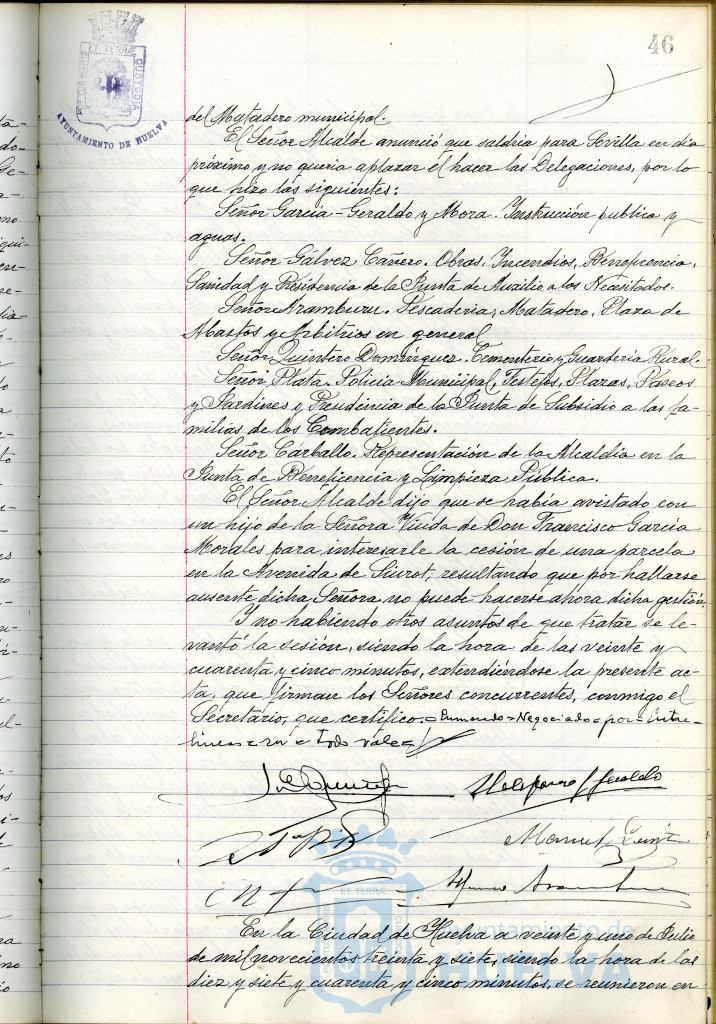 46
AYUNTAMIENTO DE HUELVA
del Matadero municipal.
El Señor Alcalde anunció que saldria para Sevilla en dia
próximo y no queria aplazar el hacer las Delegaciones, por lo
que hizo las siguientes:
Señor Garcia-Geraldo y Mora. Instrucion publica y
aguas.
Señor Gálvez Cañero. Obras, Incendios, Beneficencia,
Sanidad y Presidencia de la Junta de Auxilio a los Necesitados.
Señor Aramburu. Pescaderia, Matadero, Plaza de
Abastos y Arbitrios en general
Señor Quintero Dominguez. Cementerio y Guarderia Rural.
Señor Plata. Policia Municipal, Festejos, Plazas, Paseos
y Jardines y Presidencia de la Junta de Subsidio a las fa-
milias de los Combatientes.
Señor Carballo. Representación de la Alcaldia en la
Junta de Beneficencia y Limpieza Pública.
El Señor Alcalde dijo que se habia avistado con
un hijo de la Señora Viuda de Don Francisco Garcia
Morales para interesarle la cesión de una parcela
en la Avenida de Siurot, resultando que por hallarse
ausente dicha Señora no puede hacerse ahora dicha gestión.
Y no habiendo otros asuntos de que tratar se le-
vantó la sesión, siendo la hora de las veinte y
cuarenta y cinco minutos, extendiéndose la presente ac-
ta, que firman los Señores concurrentes, conmigo el
Secretario, que certifico.= Enmendo = Negociado = por = Entre-
lineas = = Todo vale =
Manuel
En la Ciudad de Huelva a veinte y uno de Julio
de mil novecientos treinta y siete, siendo la hora de las
diez y siete y cuarenta y cinco minutos, se reunieron en
Ayuntamiento de
HUELVA